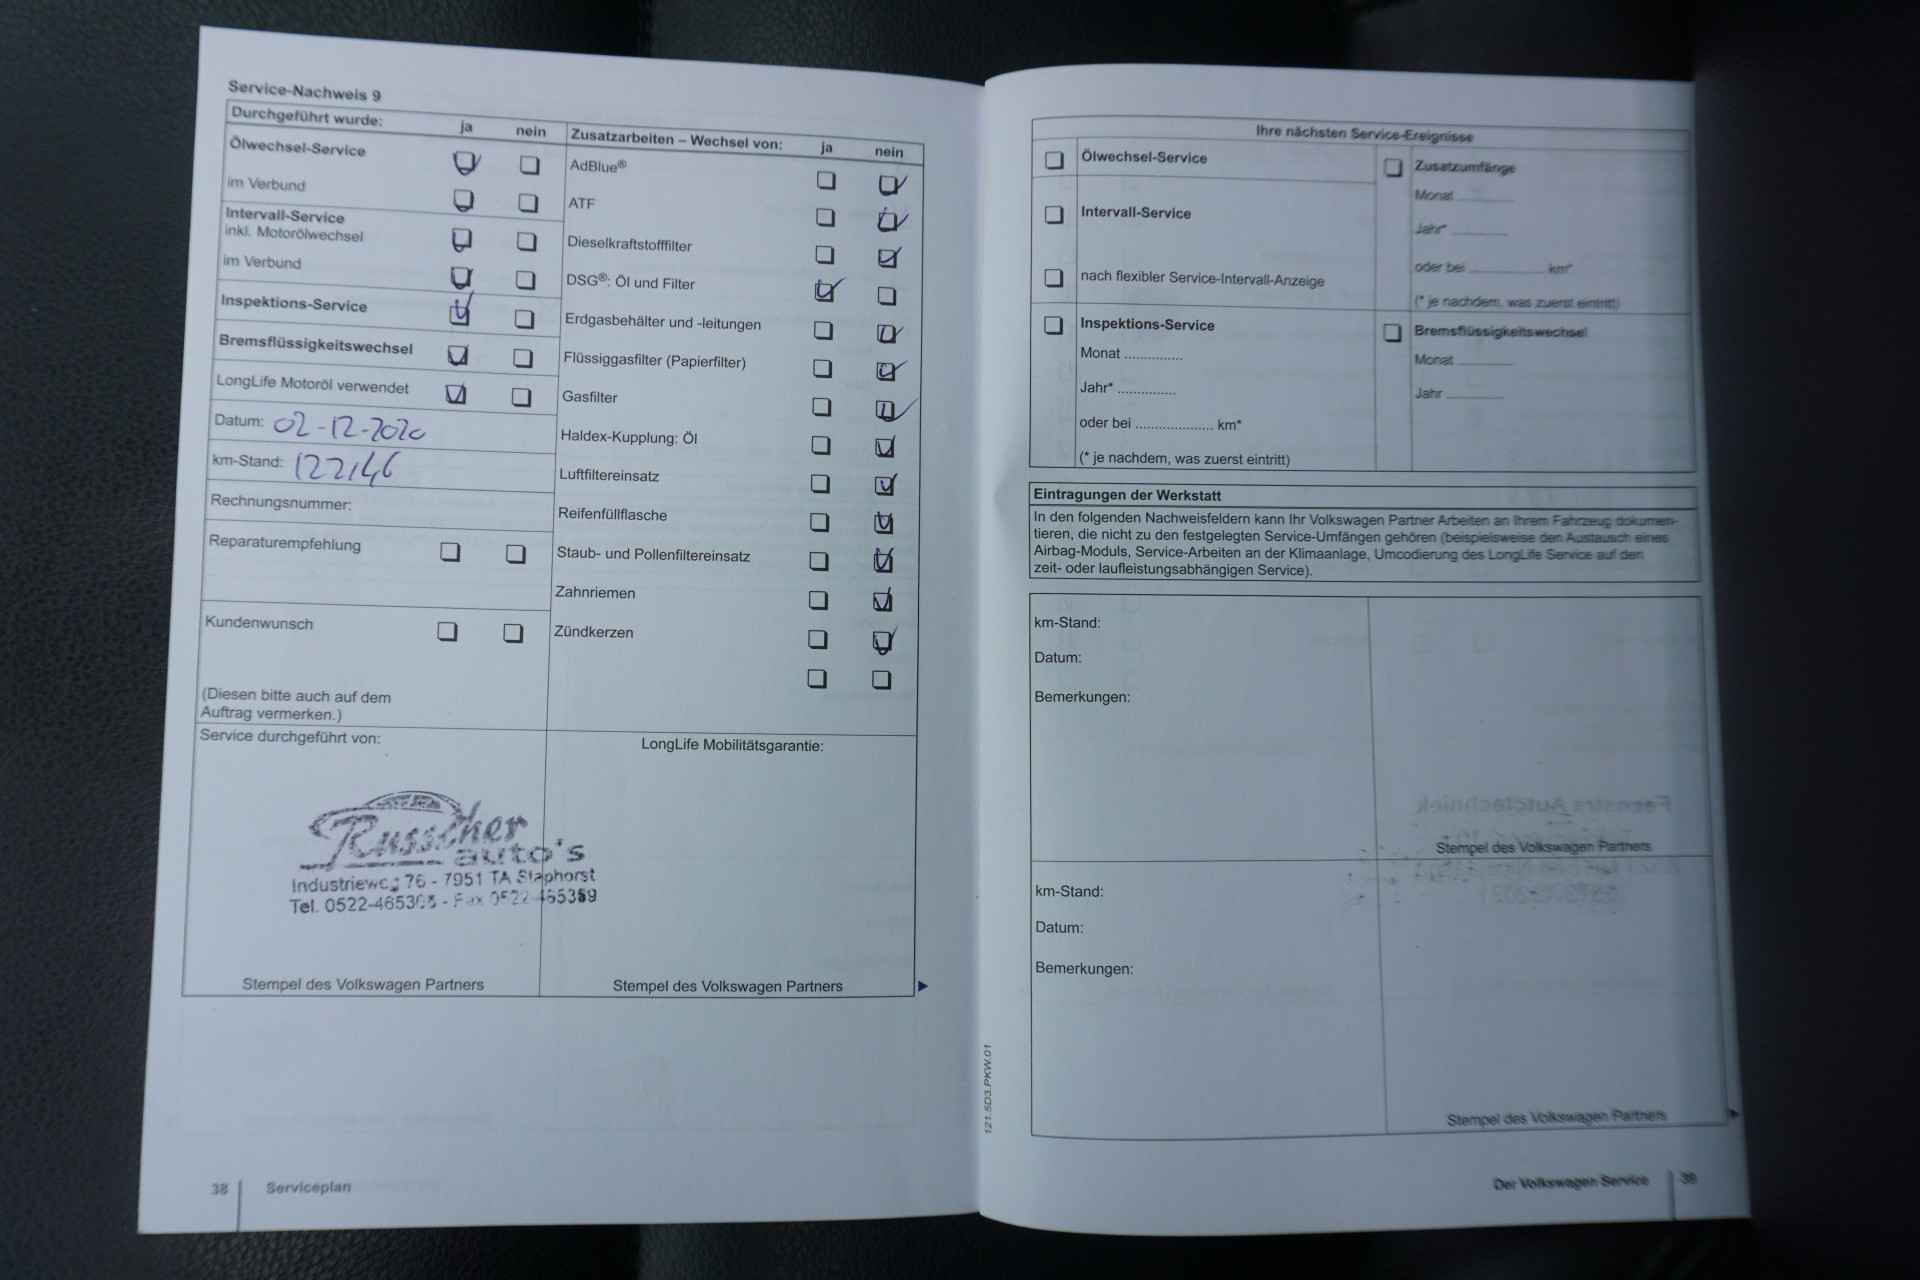 Service-Nachweis 9
Durchgeführt wurde: ja nein
Ölwechsel-Service
im Verbund
Intervall-Service
inkl. Motorölwechsel
im Verbund
Inspektions-Service
Bremsflüssigkeitswechsel
LongLife Motoröl verwendet
Datum: 02-12-2020
km-Stand: 122146
Rechnungsnummer:
Reparaturempfehlung
Kundenwunsch
(Diesen bitte auch auf dem
Auftrag vermerken.)
Zusatzarbeiten – Wechsel von: ja nein
AdBlue®
ATF
Dieselkraftstofffilter
DSG®: Öl und Filter
Erdgasbehälter und -leitungen
Flüssiggasfilter (Papierfilter)
Gasfilter
Haldex-Kupplung: Öl
Luftfiltereinsatz
Reifenfüllflasche
Staub- und Pollenfiltereinsatz
Zahnriemen
Zündkerzen
Service durchgeführt von:
Russcher
auto's
Industrieweg 76 - 7951 TA Staphorst
Tel. 0522-465365 - Fax 0522-465359
Stempel des Volkswagen Partners
LongLife Mobilitätsgarantie:
Stempel des Volkswagen Partners
38 Serviceplan
Ihre nächsten Service-Ereignisse
Ölwechsel-Service
Intervall-Service
nach flexibler Service-Intervall-Anzeige
Inspektions-Service
Monat ..............
Jahr* ...............
oder bei .................... km*
(* je nachdem, was zuerst eintritt)
Zusatzumfänge
Monat ..............
Jahr* ..............
oder bei .................... km*
(* je nachdem, was zuerst eintritt)
Bremsflüssigkeitswechsel
Monat ..............
Jahr ..............
Eintragungen der Werkstatt
In den folgenden Nachweisfeldern kann Ihr Volkswagen Partner Arbeiten an Ihrem Fahrzeug dokumen-
tieren, die nicht zu den festgelegten Service-Umfängen gehören (beispielsweise den Austausch eines
Airbag-Moduls, Service-Arbeiten an der Klimaanlage, Umcodierung des LongLife Service auf den
zeit- oder laufleistungsabhängigen Service).
km-Stand:
Datum:
Bemerkungen:
Stempel des Volkswagen Partners
km-Stand:
Datum:
Bemerkungen:
Stempel des Volkswagen Partners
121.5D3.PKW.01
Der Volkswagen Service 39